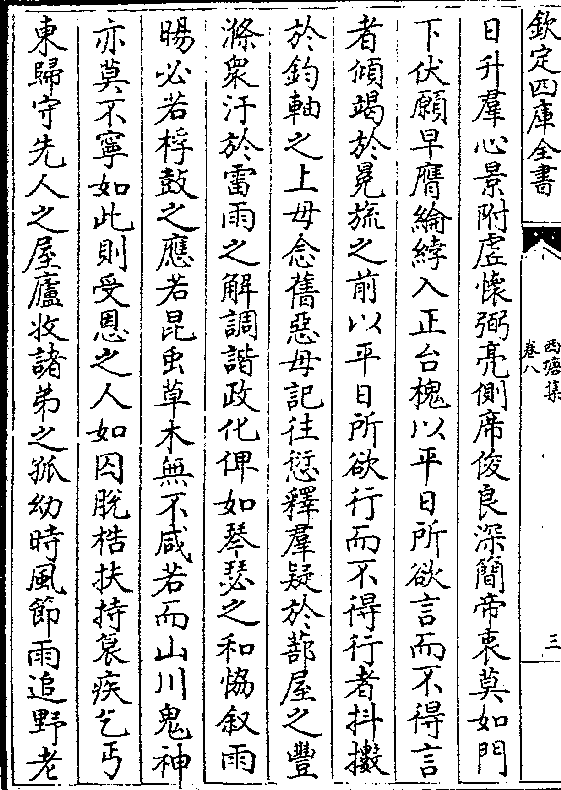 欽定四庫全書
西塘集
卷八
三
日升羣心景附虚懷弼亮側席俊良深簡帝衷莫如門
下伏願早膺綸綍入正台槐以平日所欲言而不得言
者傾竭於冕旒之前以平日所欲行而不得行者抖擻
於鈞軸之上毋念舊惡毋記往愆釋羣疑於蔀屋之豐
滌衆汙於雷雨之解調諧政化俾如琴瑟之和恊叙雨
暘必若桴鼓之應若昆虫草木無不咸若而山川鬼神
亦莫不寧如此則受恩之人如囚脫梏扶持衰疾乞丐
東歸守先人之屋廬收諸弟之孤幼時風節雨追野老